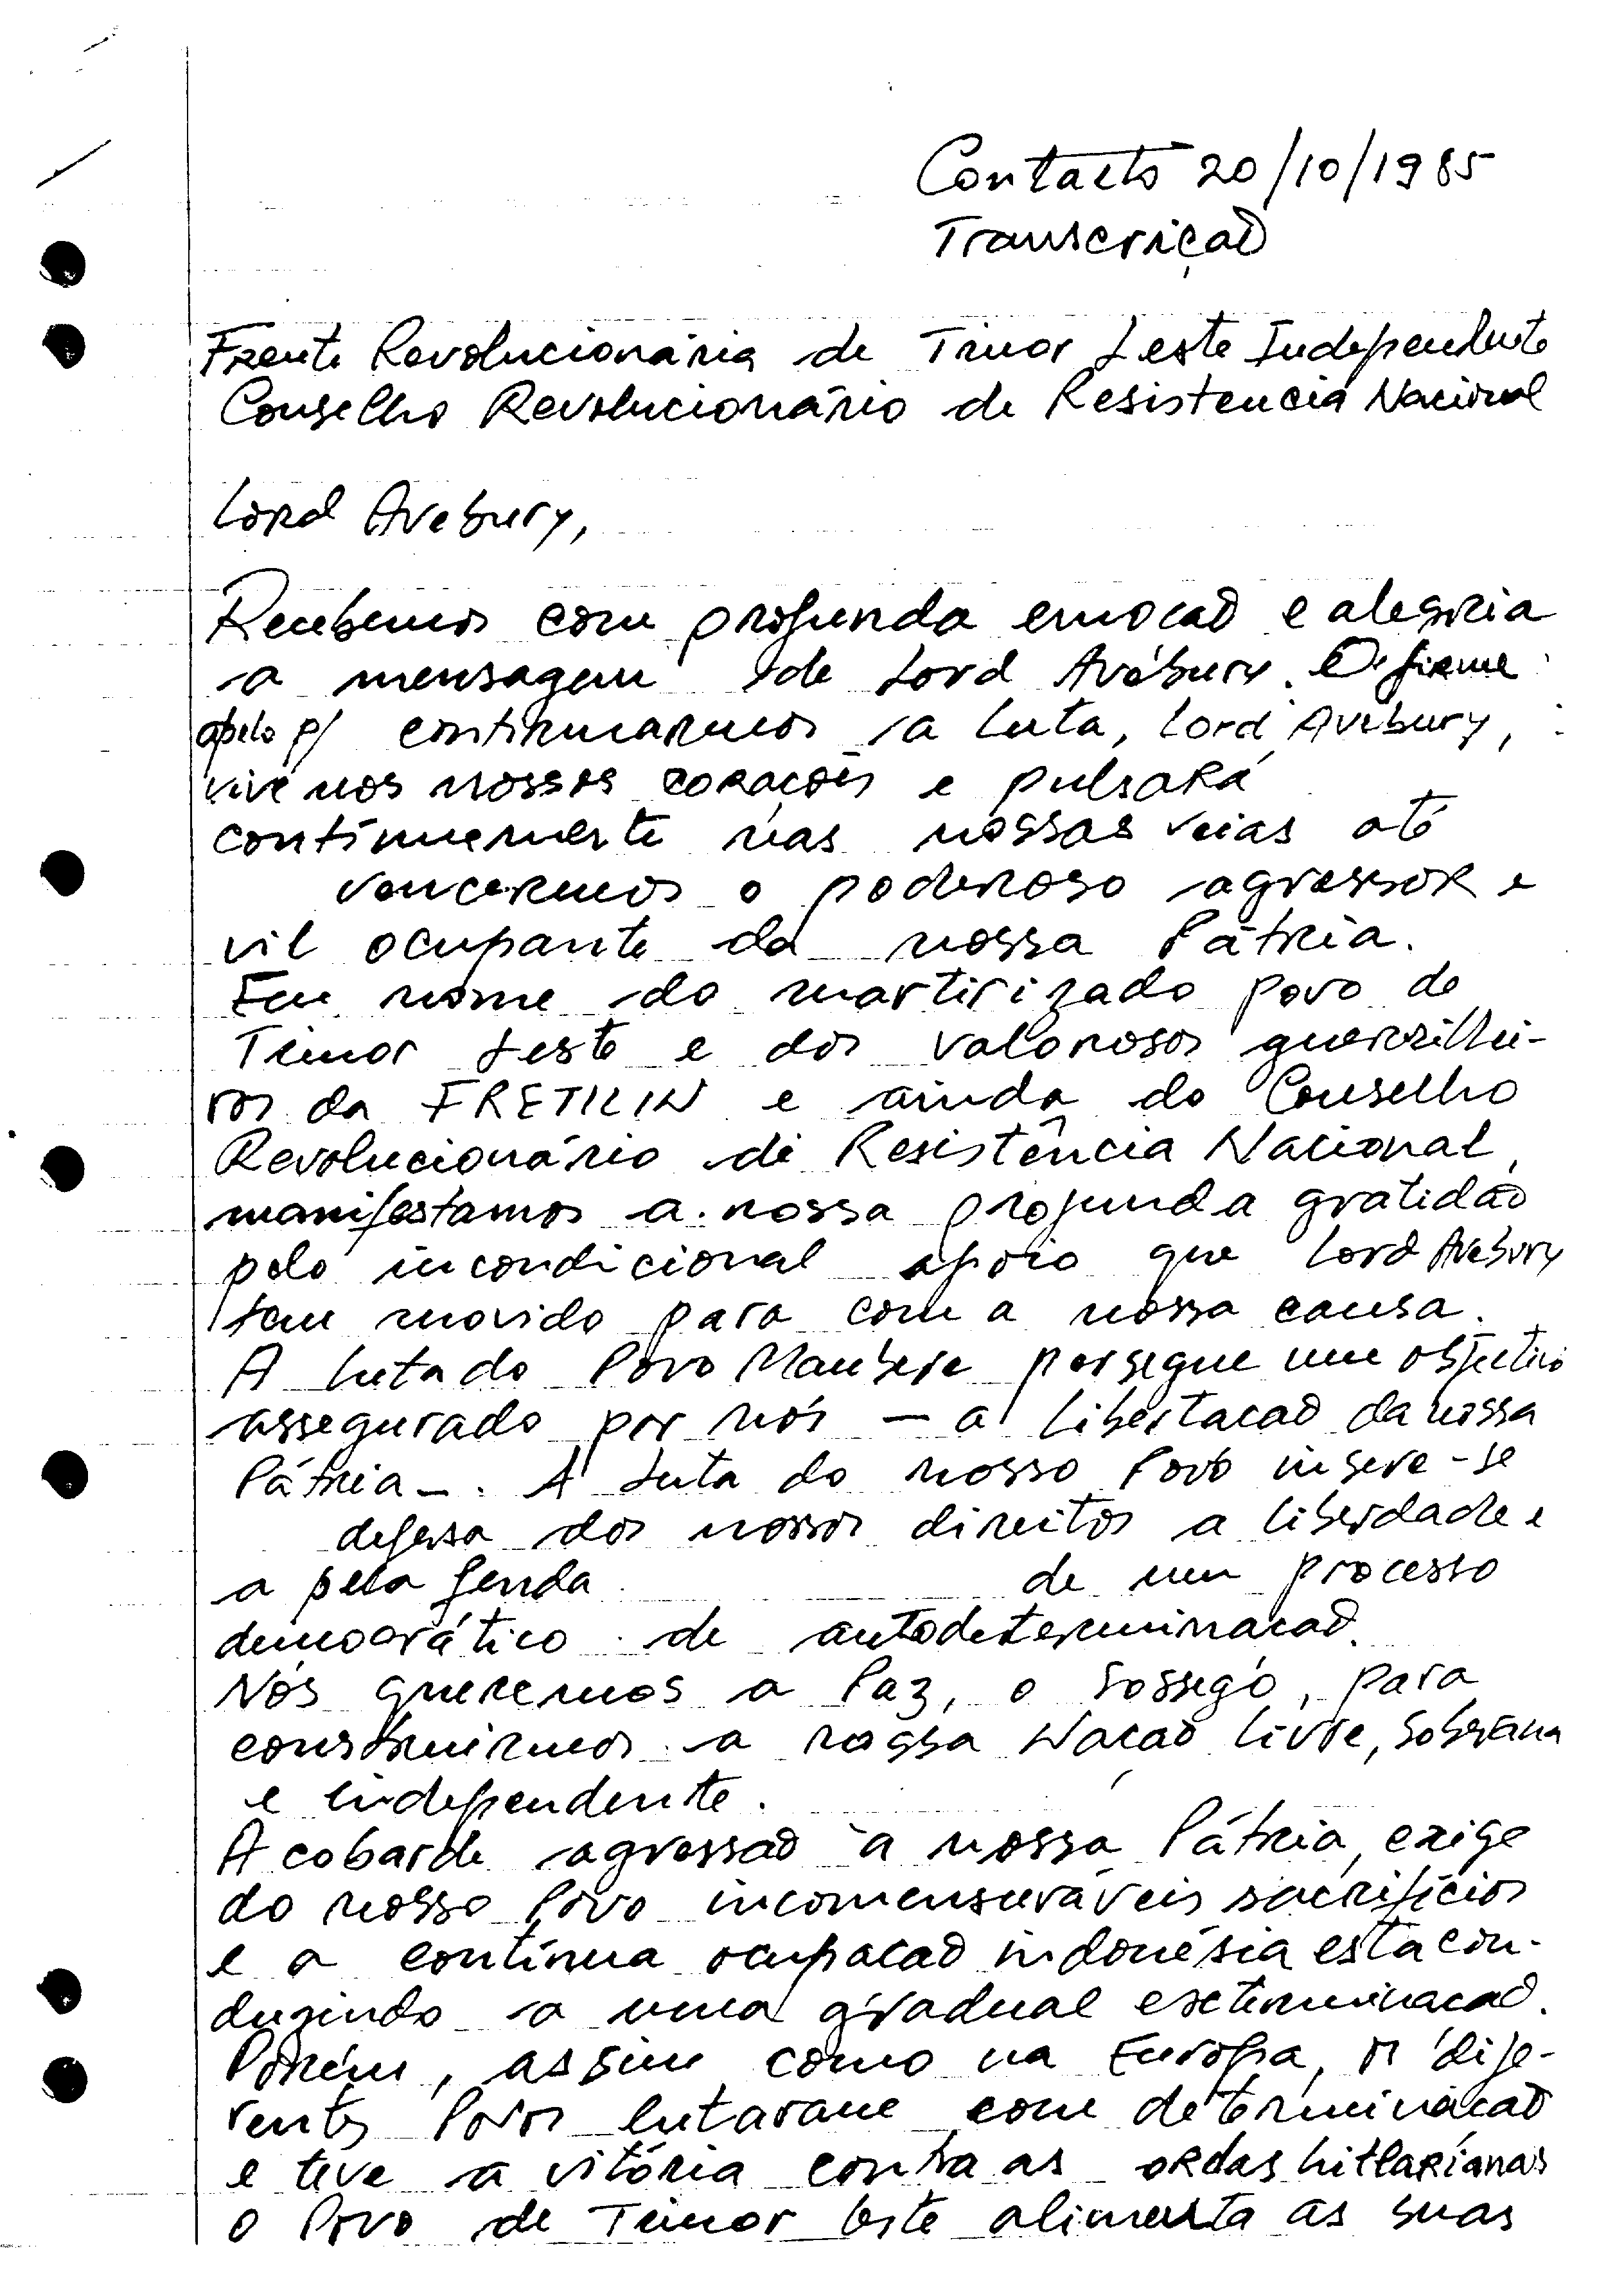 Contacto 20/10/1985
Transcriçaõ
Frente Revolucionária de Timor Leste Independente
Conselho Revolucionário de Resistencia Nacional
Lord Avebury,
Recebemos com profunda emocaõ e alegria
a mensagem de Lord Avebury. O firme
apelo p/ continuarmos a luta, Lord Avebury,
vive nos nossos coraçoẽs e pulsará
continuemente nas nossas veias até
vencermos o poderoso agressor e
vil ocupante da nossa Pátria.
Em nome do martirizado povo de
Timor Leste e dos valorosos guerrilhei-
ros da FRETILIN e ainda do Conselho
Revolucionário de Resistência Nacional,
manifestamos a nossa profunda gratidaõ
pelo incondicional apoio que Lord Avebury
tem movido para com a nossa causa.
A luta do Povo Maubere persegue um objectivo
assegurado por nós — a libertacaõ da nossa
Pátria —. A luta do nosso Povo insere-se
defesa dos nossos direitos a liberdade e
a pela senda de um processo
democrático de autodeterminacaõ.
Nós queremos a Paz, o sossego, para
construirmos a nossa Nacaõ livre, soberana
e independente.
A cobarde agressaõ à nossa Pátria, exige
do nosso Povo incomensuráveis sacrifícios
e a contínua ocupacaõ indonésia está con-
duzindo a uma gradual exterminacaõ.
Porém, assim como na Europa, os dife-
rentes Povos lutaram com determinacaõ
e teve a vitória contra as ordas hitlarianas
o Povo de Timor Leste alimenta as suas